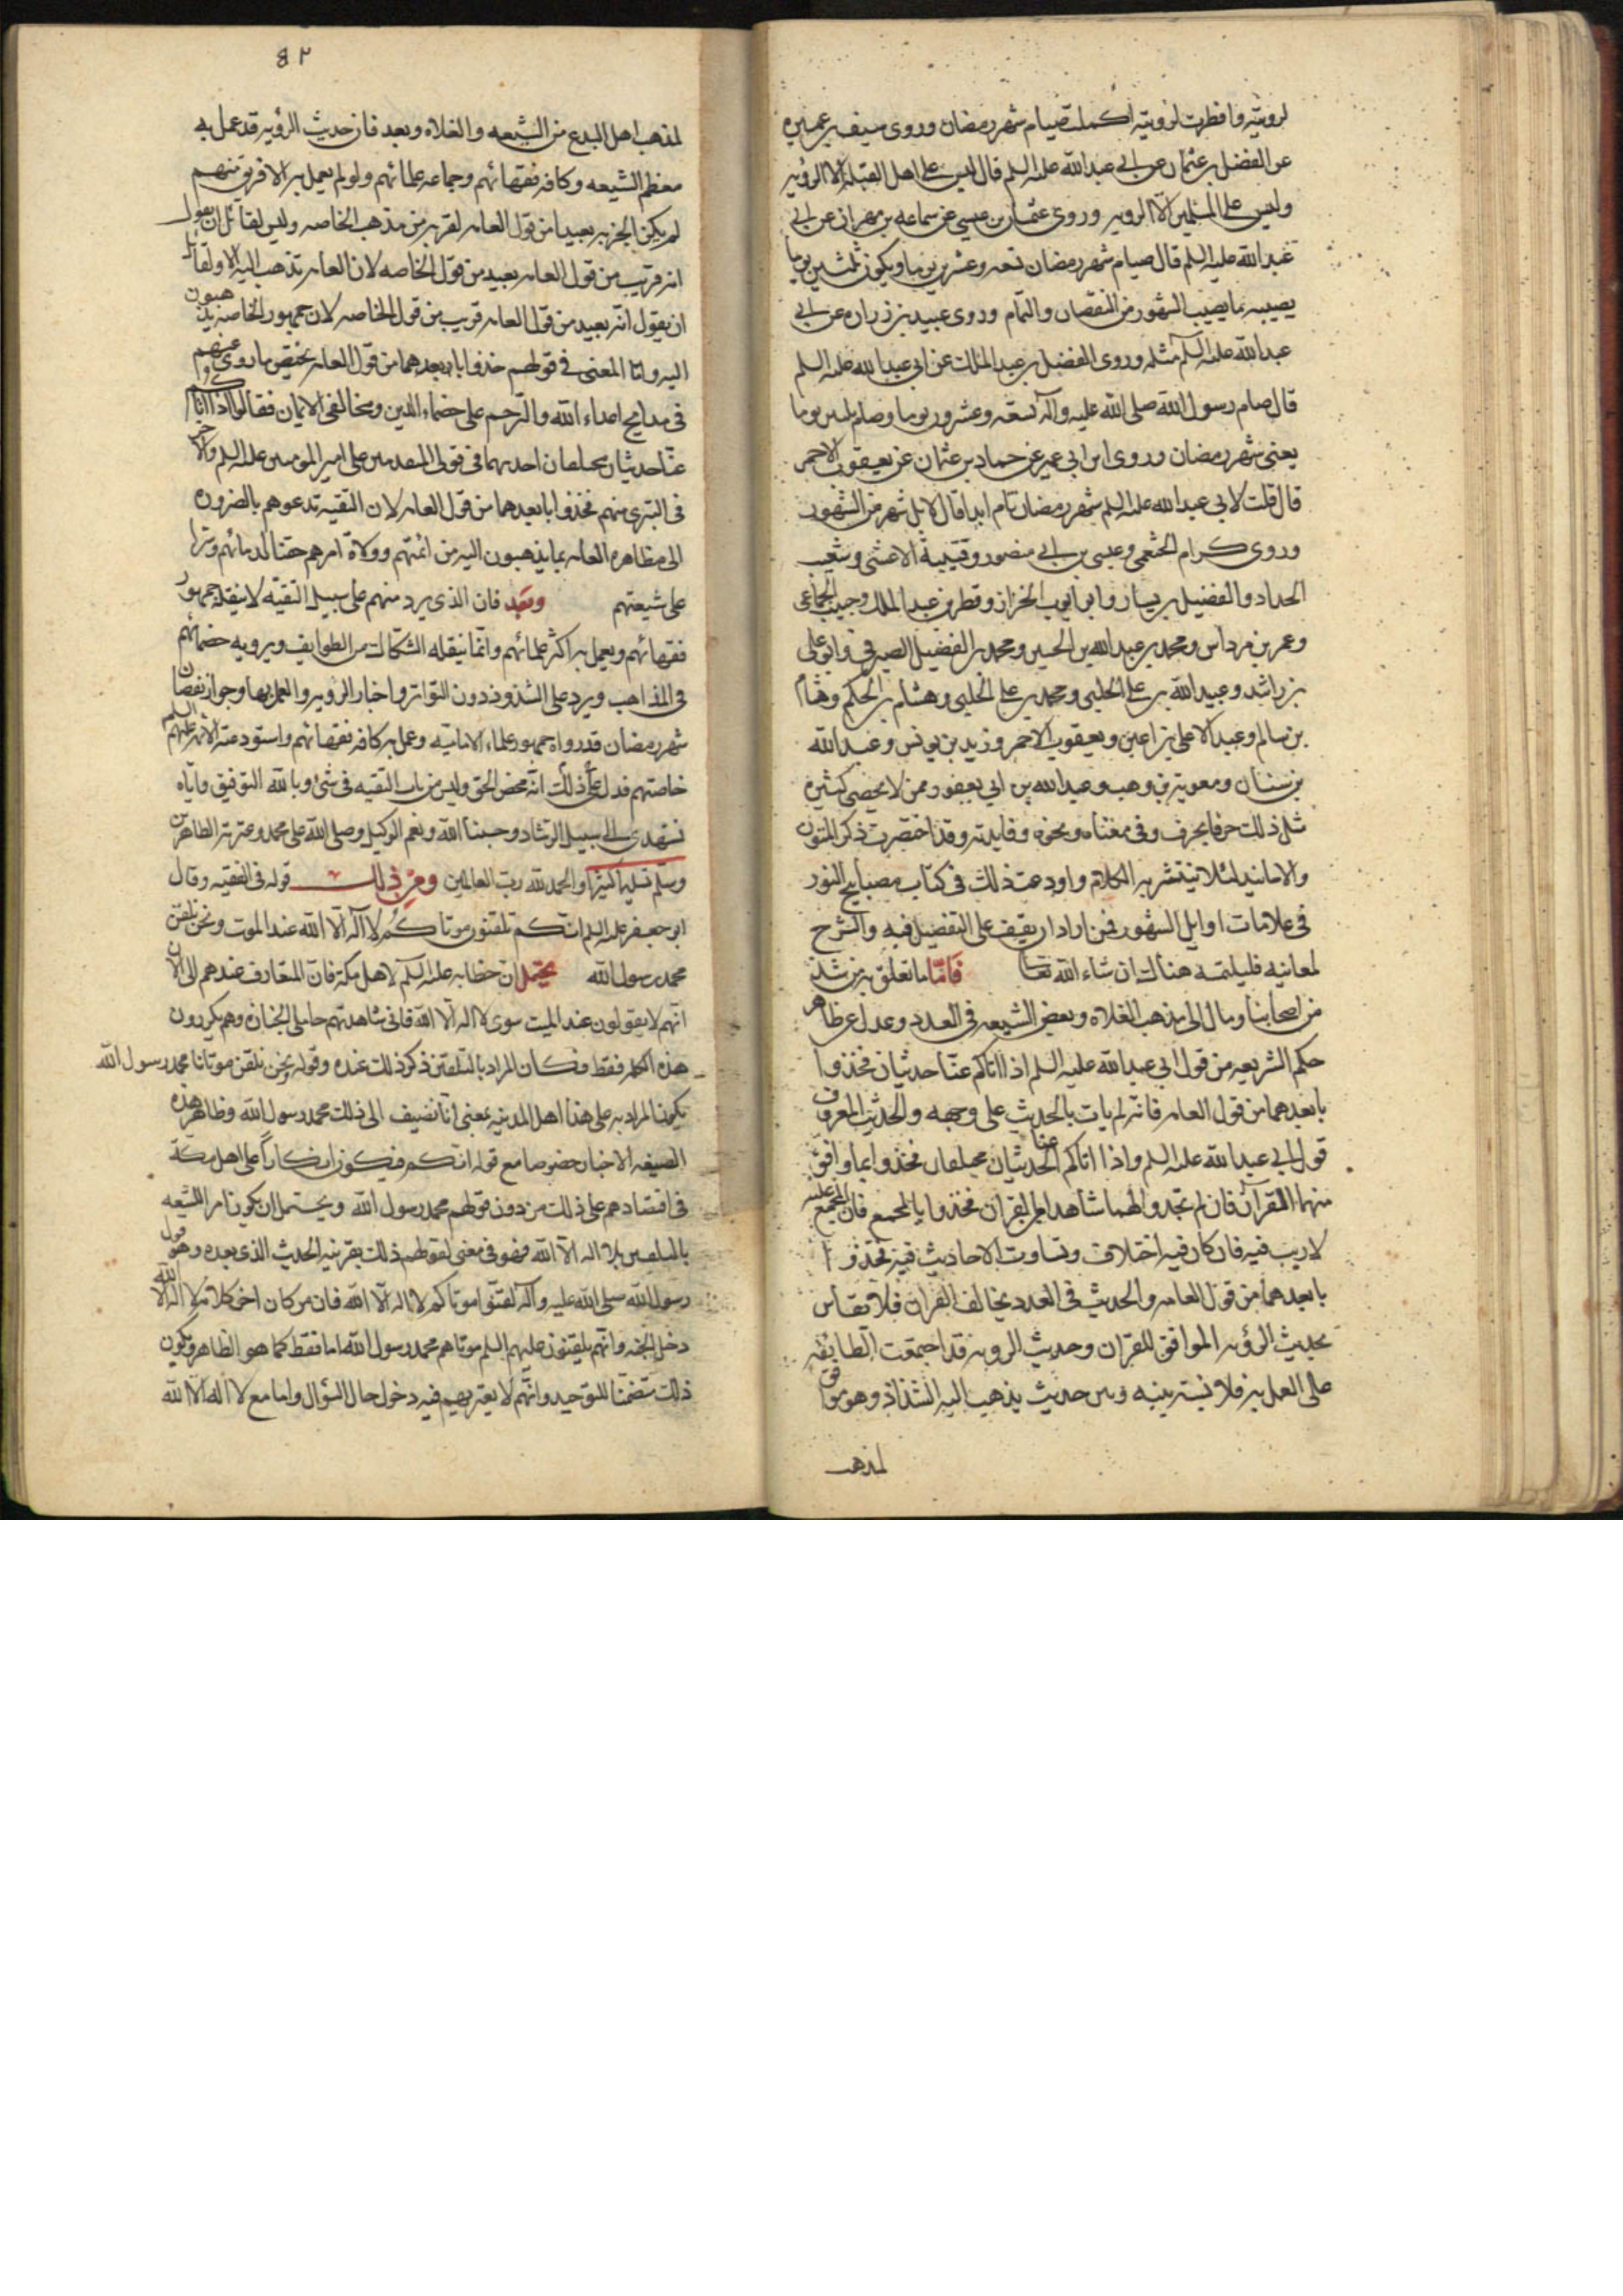 لرويته وافطرت لرويته اكملت صيام شهر رمضان وروى سيف بن عميره
عن الفضل بن عثمان عن ابي عبدالله عليه السلم قال ليس على اهل القبلة الا الرؤيه
وليس على المسلمين الا الرويه وروى عثمان بن عيسى عن سماعه بن مهران عن ابي
عبدالله عليه السلم قال صيام شهر رمضان تسعه وعشرين يوما ويكون ثلثين يوما
يصيبه ما يصيب الشهور من النقصان والتمام وروى عبيد بن زراره عن ابي
عبدالله عليه السلم مثله وروى الفضل بن عبد الملك عن ابي عبدالله عليه السلم
قال صام رسول الله صلى الله عليه وآله تسعه وعشرون يوما وصام ثلثين يوما
يعنى شهر رمضان وروى ابن ابي عمير عن حماد بن عثمان عن يعقوب الاحمر
قال قلت لابي عبدالله عليه السلم شهر رمضان تام ابدا قال لا بل شهر من الشهور
وروى كرام الخثعمي وعيسى بن ابي منصور وقتيبة الاعشى وشعيب
الحداد والفضيل بن يسار وابن ايوب الخزاز وقطر بن عبد الملك وحبيب الجماعى
وعمر بن مرداس ومحمد بن عبدالله بن الحسين ومحمد بن الفضيل الصيرفي وابو على
بن راشد وعبيدالله بن على الحلبي ومحمد بن على الحلبي وهشام بن الحكم وهشام
بن سالم وعبد الاعلى بن اعين ويعقوب الاحمر وزيد بن يونس وعبدالله
بن سنان ومعوية بن وهب وعبدالله بن ابي يعفور ممن لا يحصى كثيره
مثل ذلك حرفا بحرف وفى معناه ونحوه وفايدته وقد اختصرت ذكر المتون
والاسانيد لئلا ينتشر به الكلام واودعت ذلك فى كتاب مصابيح النور
فى علامات اوايل الشهور فمن اراد ان يقف على التفصيل فيه والشرح
لمعانيه فليلتمسه هناك ان شاء الله تعالى فاما ما تعلق به من شذ
من اصحابنا ومال الى مذهب الغلاه وبعض الشيعه فى العدد وعدل عن ظاهر
حكم الشريعه من قول ابي عبدالله عليه السلم اذا اتاكم عنا حديثان فخذوا
بابعدهما من قول العامه فانه لم يات بالحديث على وجهه والحديث المعروف
قول ابي عبدالله عليه السلم واذا اتاكم عنا الحديثان مختلفان فخذوا بما وافق
منهما القرآن فان لم تجدوا لهما شاهدا من القران فخذوا بالمجمع عليه فان المجمع
لا ريب فيه فان كان فيه اختلاف وتساوت الاحاديث فيه فخذوا
بابعدهما من قول العامه والحديث فى العدد يخالف القران فلا تقاس
بحديث الرؤيه الموافق للقران وحديث الرويه قد اجتمعت الطايفه
على العمل به فلا نسبة بينه وبين حديث يذهب اليه الشذاذ وهو موافق
لمذهب
٨٢
لمذهب اهل البدع من الشيعه والغلاه وبعد فان حديث الرؤيه قد عمل به
معظم الشيعه وكافه فقهائهم وجماعه علمائهم ولو لم يعمل به الا فريق منهم
لم يكن الخبر به بعيدا من قول العامه لقربه من مذهب الخاصه وليس لقائل ان يقول
انه قريب من قول العامه بعيد من قول الخاصه لان العامه تذهب اليه الا ولقائل
ان يقول انه بعيد من قول العامه قريب من قول الخاصه لان جمهور الخاصه يذهبون
اليه وانما المعنى فى قولهم خذوا بابعدهما من قول العامه يختص ما روى عنهم
فى مدايح اعداء الله والترحم على خصماء الدين ومخالفى الايمان فقالوا اذا اتاكم
عنا حديثان مختلفان احدهما فى تولى المتقدمين على امير المومنين عليه السلم والاخر
فى التبرى منهم فخذوا بابعدهما من قول العامه لان التقيه تدعوهم بالضروره
الى مظاهره العامه بما يذهبون اليه من ائمتهم وولاة امرهم حقنا لدمائهم وسترا
على شيعتهم وبعد فان الذى يرد منهم على سبيل التقيه لا ينقله جمهور
فقهائهم ويعمل به اكثر علمائهم وانما ينقله الشكاك من الطوايف ويرويه خصمائهم
فى المذاهب ويرد على الشذوذ دون التواتر واخبار الرويه والعمل بها وجواز نقصان
شهر رمضان قد رواه جمهور علماء الاماميه وعمل به كافه فقهائهم واستودعته الائمه عليهم السلم
خاصتهم فدل على ذلك انه محض الحق وليس من باب التقيه فى شئ وبالله التوفيق واياه
نستهدى الى سبيل الرشاد وحسبنا الله ونعم الوكيل وصلى الله على محمد وعترته الطاهرين
وسلم تسليما كثيرا والحمد لله رب العالمين ومن ذلك قوله فى الفقيه وقال
ابو جعفر عليه السلم انكم تلقنون موتاكم لا اله الا الله عند الموت ونحن نلقن
محمد رسول الله يحتمل ان خطابه عليه السلم لاهل مكة فان المتعارف عندهم الى الان
انهم لا يقولون عند الميت سوى لا اله الا الله فانى شاهدتهم حاملى الجنازه وهم يكررون
هذه الكلمه فقط فكان المراد بالتلقين ذكر ذلك عنده وقوله نحن نلقن موتانا محمد رسول الله
يكون المراد به على هذا اهل المدينه بمعنى انا نضيف الى ذلك محمد رسول الله وظاهر هذه
الصيغه الاخبار خصوصا مع قوله انكم فيكون انكاراً على اهل مكة
فى اقتصادهم على ذلك من دون قولهم محمد رسول الله ويحتمل ان يكون امر اللشيعه
بالتلقين بلا اله الا الله فهو فى معنى لقنوهم ذلك بقرينه الحديث الذى بعده وهو قول
رسول الله صلى الله عليه وآله لقنوا موتاكم لا اله الا الله فان من كان اخر كلامه لا اله الا الله
دخل الجنه وانهم يلقنون عليهم السلم موتاهم محمد رسول الله اما فقط كما هو الظاهر ويكون
ذلك متضمنا للتوحيد وانهم لا يعتريهم فيه دخول حال السؤال واما مع لا اله الا الله